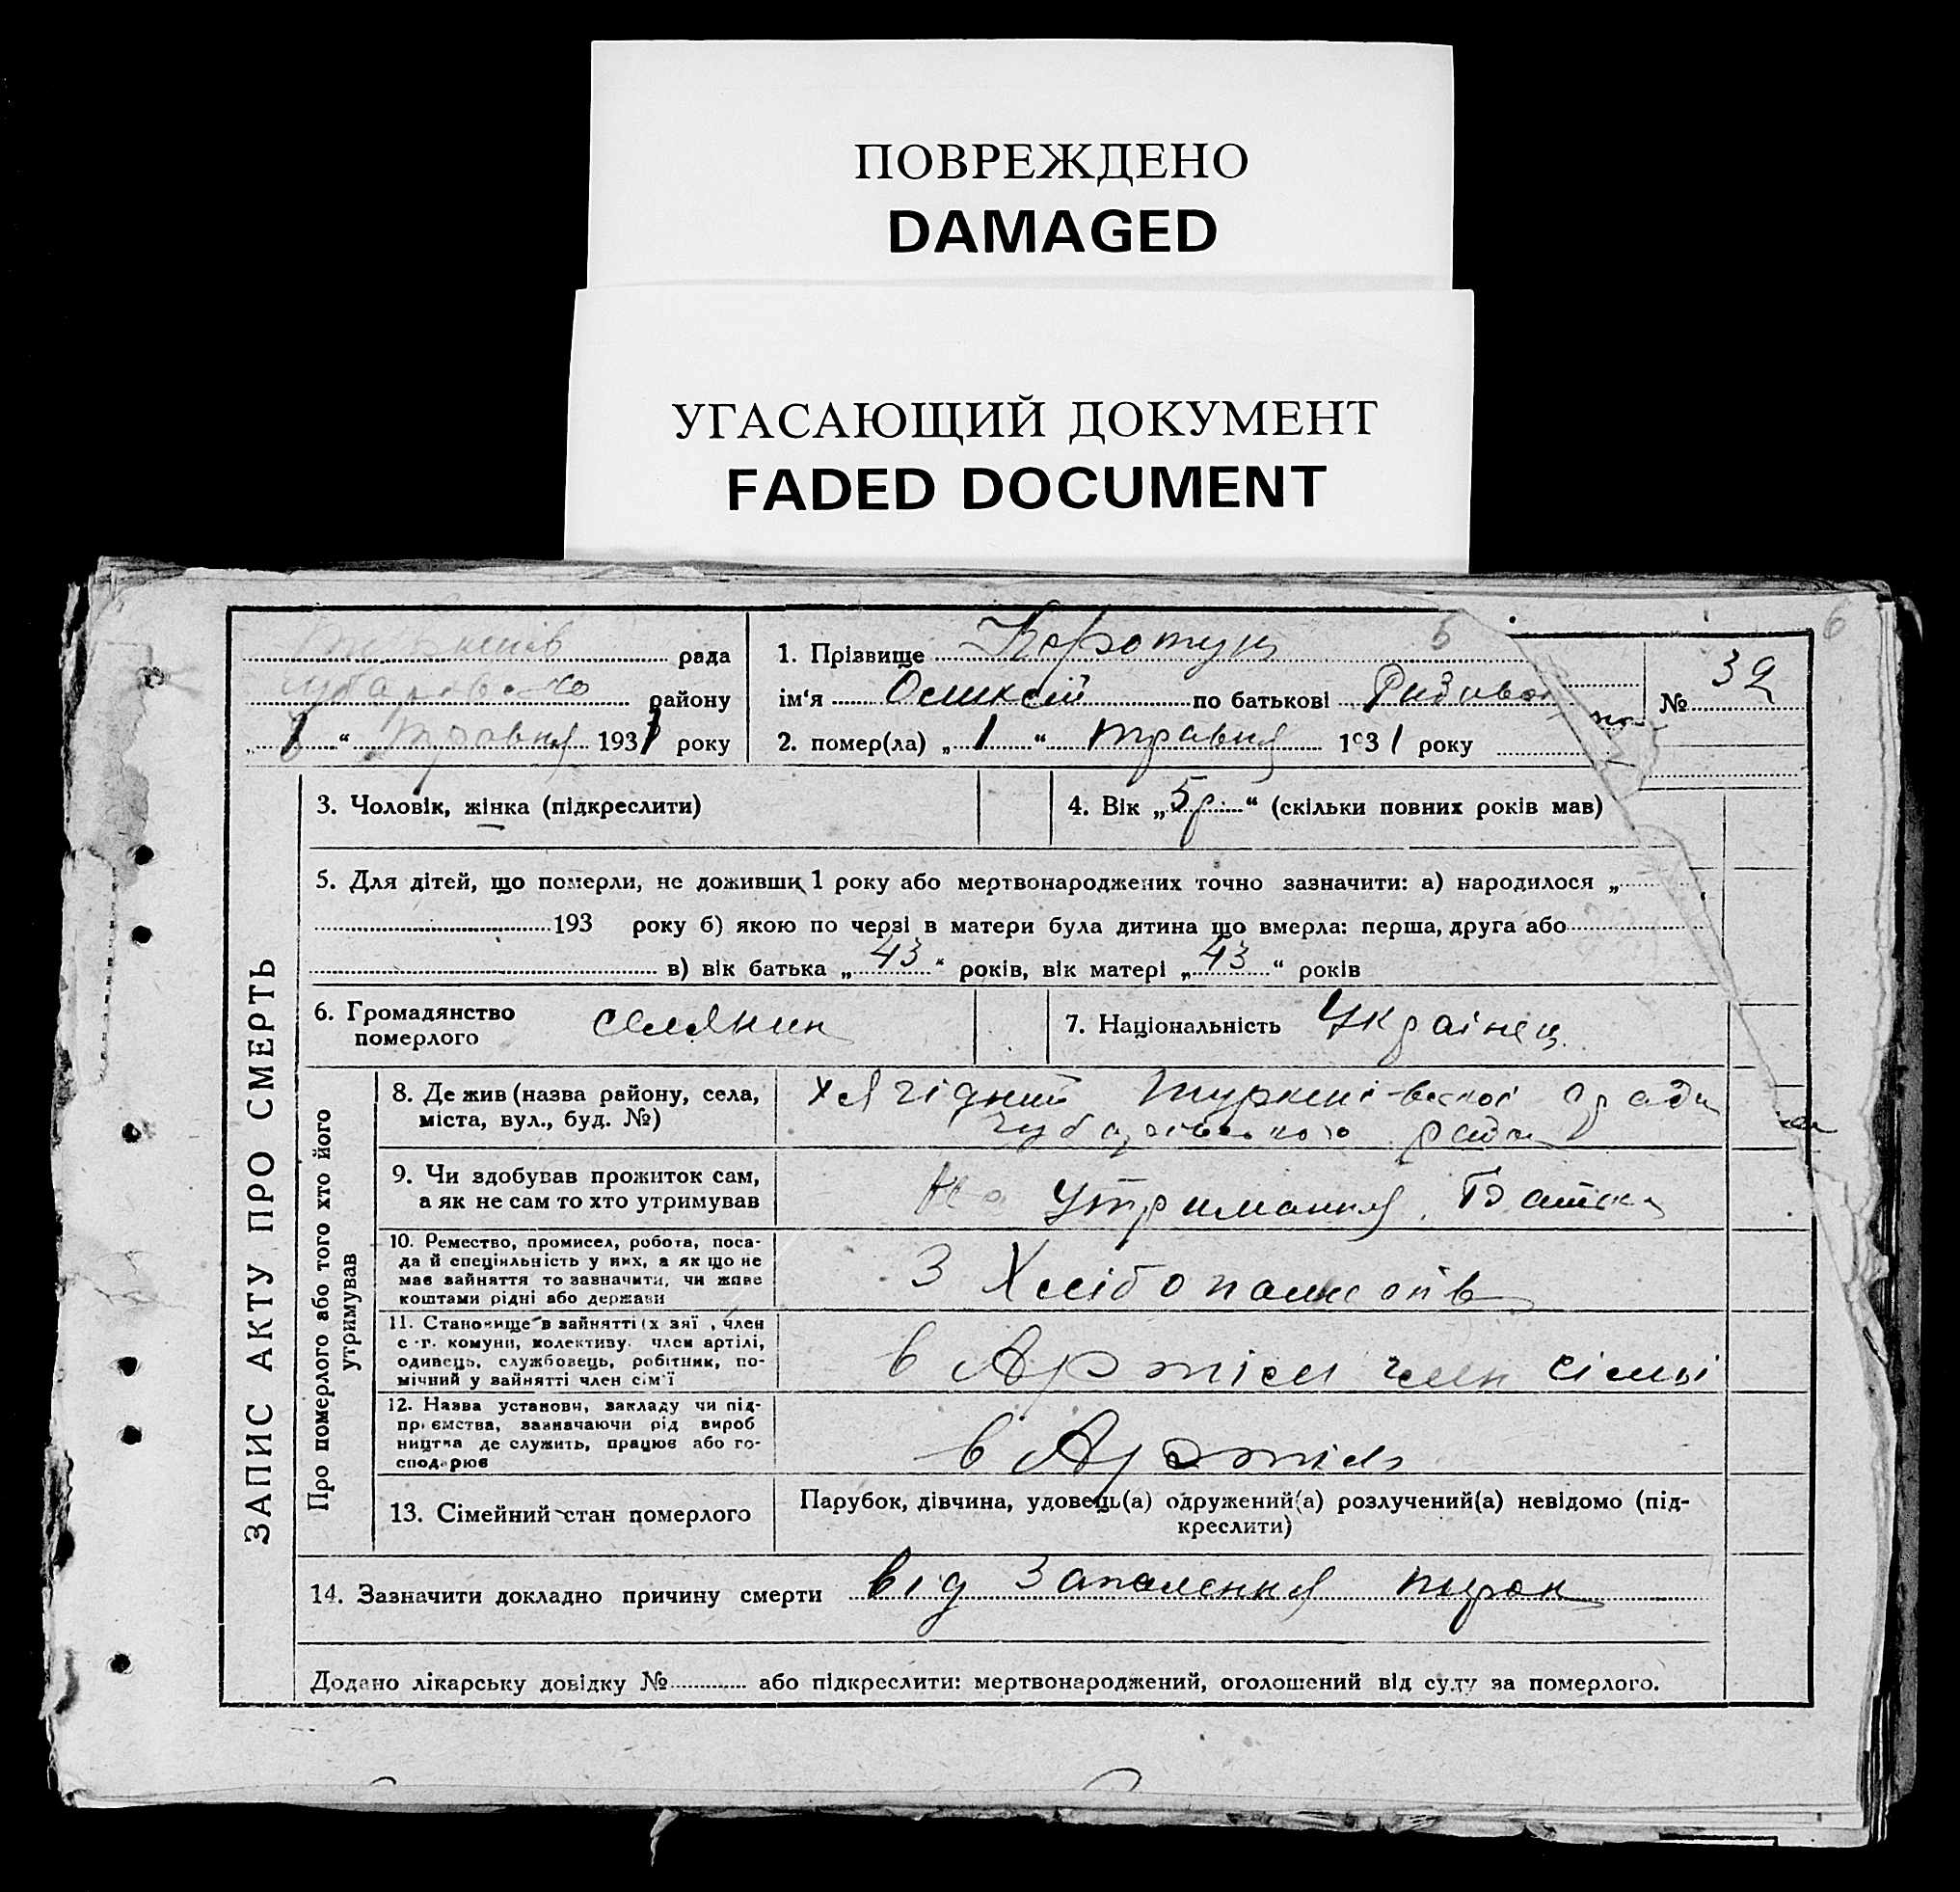 ПОВРЕЖДЕНО
DAMAGED
УГАСАЮЩИЙ ДОКУМЕНТ
FADED DOCUMENT
6
рада
району
„ “ травня 1931 року
1. Прізвище Коротун 5
ім‘я Оликсій по батькові
2. помер(ла) „1“ травня 1931 року
№ 32
3. Чоловік, жінка (підкреслити)
4. Вік „5р.“ (скільки повних років мав)
5. Для дітей, що померли, не доживши 1 року або мертвонароджених точно зазначити: а) народилося „
193 року б) якою по черзі в матери була дитина що вмерла: перша, друга або
в) вік батька „43“ років, вік матері „43“ років
ЗАПИС АКТУ ПРО СМЕРТЬ
6. Громадянство
померлого
селянин
7. Національність Українец
Про померлого або того хто його
утримував
8. Де жив (назва району, села,
міста, вул., буд. №)
ради
9. Чи здобував прожиток сам,
а як не сам то хто утримував
На утримання Батька
10. Ремество, промисел, робота, поса-
да й спеціяльність у них, а як що не
має зайняття то зазначити, чи живе
коштами рідні або держави
З Хлібопашест
11. Становище в зайнятті (х зяї , член
с -г. комуни, колективу, член артілі,
одинець, службовець, робітник, по-
мічний у зайнятті член сім'ї
в Артіли член сімьі
12. Назва установи, закладу чи під-
приємства, зазначаючи рід вироб
ництва де служить, працює або го-
сподарює
в Артіль
13. Сімейний стан померлого
Парубок, дівчина, удовець(а) одружений(а) розлучений(а) невідомо (під-
креслити)
14. Зазначити докладно причину смерти від Запалення нирок
Додано лікарську довідку № або підкреслити: мертвонароджений, оголошений від суду за померлого.